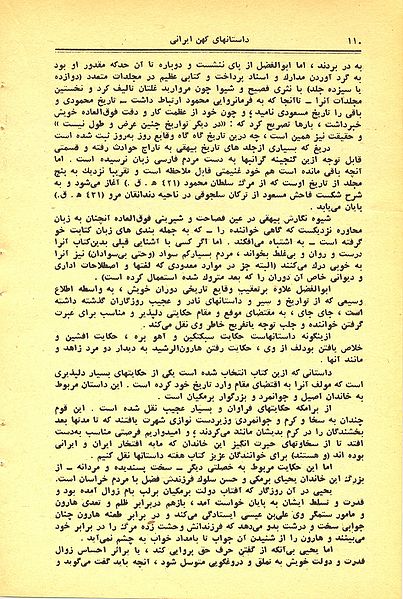 ۱۱۰ داستانهای کهن ایرانی
به در بردند ، اما ابوالفضل از پای ننشست و دوباره تا آن حدکه مقدور او بود
به گرد آوردن مدارك و اسناد پرداخت و کتابی عظیم در مجلدات متعدد (دوازده
یا سیزده جلد) با نثری فصیح و شیوا چون مروارید غلتان تالیف کرد و نخستین
مجلدات آنرا ــ تاآنجا که به فرمانروایی محمود ارتباط داشت ــ تاریخ محمودی و
باقی را تاریخ مسعودی نامید ؛ و چون خود از عظمت کار و دقت فوق‌العاده خویش
خبرداشت ، بارها تصریح کرد که : «در دیگر تواریخ چنین عرض و طول نیست »
و حقیقت نیز همین است ، چه درین تاریخ گاه گاه وقایع روز به‌روز ثبت شده است
دریغ که بسیاری ازجلد های تاریخ بیهقی به تاراج حوادث رفته و قسمتی
قابل توجه ازین گنجینه گرانبها به دست مردم فارسی زبان نرسیده است . اما
آنچه باقی مانده است هم خود غنیمتی قابل ملاحظه است و تقریبا نزدیك به پنج
مجلد از تاریخ اوست که از مرگ سلطان محمود (۴۲۱ ه . ق .) آغاز می‌شود و به
شرح شکست فاحش مسعود از ترکان سلجوقی در ناحیه دندانقان مرو (۴۳۱ ه . ق .)
پایان می‌یابد .
شیوه نگارش بیهقی در عین فصاحت و شیرینی فوق‌العاده آنچنان به زبان
محاوره نزدیکست که گاهی خواننده را ــ که به جمله بندی های زبان کتابت خو
گرفته است ــ به اشتباه می‌افکند . اما اگر کسی با آشنایی قبلی بدین‌کتاب آنرا
درست و روان و بی‌غلط بخواند ، مردم بسیارکم سواد (وحتی بی‌سوادان) نیز آنرا
به خوبی درك می‌کنند (البته جز در موارد معدودی که لفتها و اصطلاحات اداری
و دیوانی خاص آن دوران را که بعد متروك شده استعمال کرده است) .
ابوالفضل علاوه برتعقیب وقایع تاریخی دوران خویش ، به واسطه اطلاع
وسیعی که از تواریخ و سیر و داستانهای نادر و عجیب روزگاران گذشته داشته
است ، جای جای ، به مقتضای موقع و مقام حکایتی دلپذیر و مناسب برای عبرت
گرفتن خواننده و جلب توجه یاتفریح خاطر وی نقل می‌کند .
ازینگونه داستانهاست حکایت سبکتکین و آهو بره ، حکایت افشین و
خلاص یافتن بودلف از وی ، حکایت رفتن هارون‌الرشید به دیدار دو مرد زاهد و
مانند آنها .
داستانی که ازین کتاب انتخاب شده است یکی از حکایتهای بسیار دلپذیری
است که مولف آنرا به اقتضای مقام وارد تاریخ خود کرده است . این داستان مربوط
به خاندان اصیل و جوانمرد و بزرگوار برمکیان است .
از برامکه حکایتهای فراوان و بسیار عجیب نقل شده است . این قوم
چندان به سخا و کرم و جوانمردی وزیردست نوازی شهرت یافتند که تا مدتها بعد
بخشندگان را در کرم بدیشان مانند می‌کردند ؛ و امیدواریم فرصتی مناسب به‌دست
افتد تا از سخاوتهای حیرت انگیز این خاندان که مایه افتخار ایران و ایرانی
بوده اند (و هستند) برای خوانندگان عزیز کتاب هفته داستانها نقل کنیم .
اما این حکایت مربوط به خصلتی دیگر ــ سخت پسندیده و مردانه ــ از
بزرگ این خاندان یحیای برمکی و حسن سلوك فرزندش فضل با مردم خراسان است.
یحیی در آن روزگار که آفتاب دولت برمکیان برلب بام زوال آمده بود و
قدرت و تسلط ایشان به پایان خواست آمد ، بازهم دربرابر ظلم و تعدی هارون
و مامور ستمگر وی علی‌بن عیسی ایستادگی می‌کند و در برابر طعنه هارون چنان
جوابی سخت و درشت بدو می‌دهد که فرزندانش وحشت زده مرگ را در برابر خود
می‌بینند و هارون را از شنیدن آن جواب تا بامداد خواب به چشم نمی‌آید .
اما یحیی بی‌آنکه از گفتن حرف حق پروایی کند ، یا براثر احساس زوال
قدرت و دولت خویش به تملق و دروغگویی متوسل شود ، آنچه باید گفت می‌گوید و